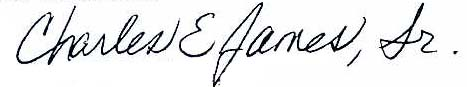 Charles E James, Sr.